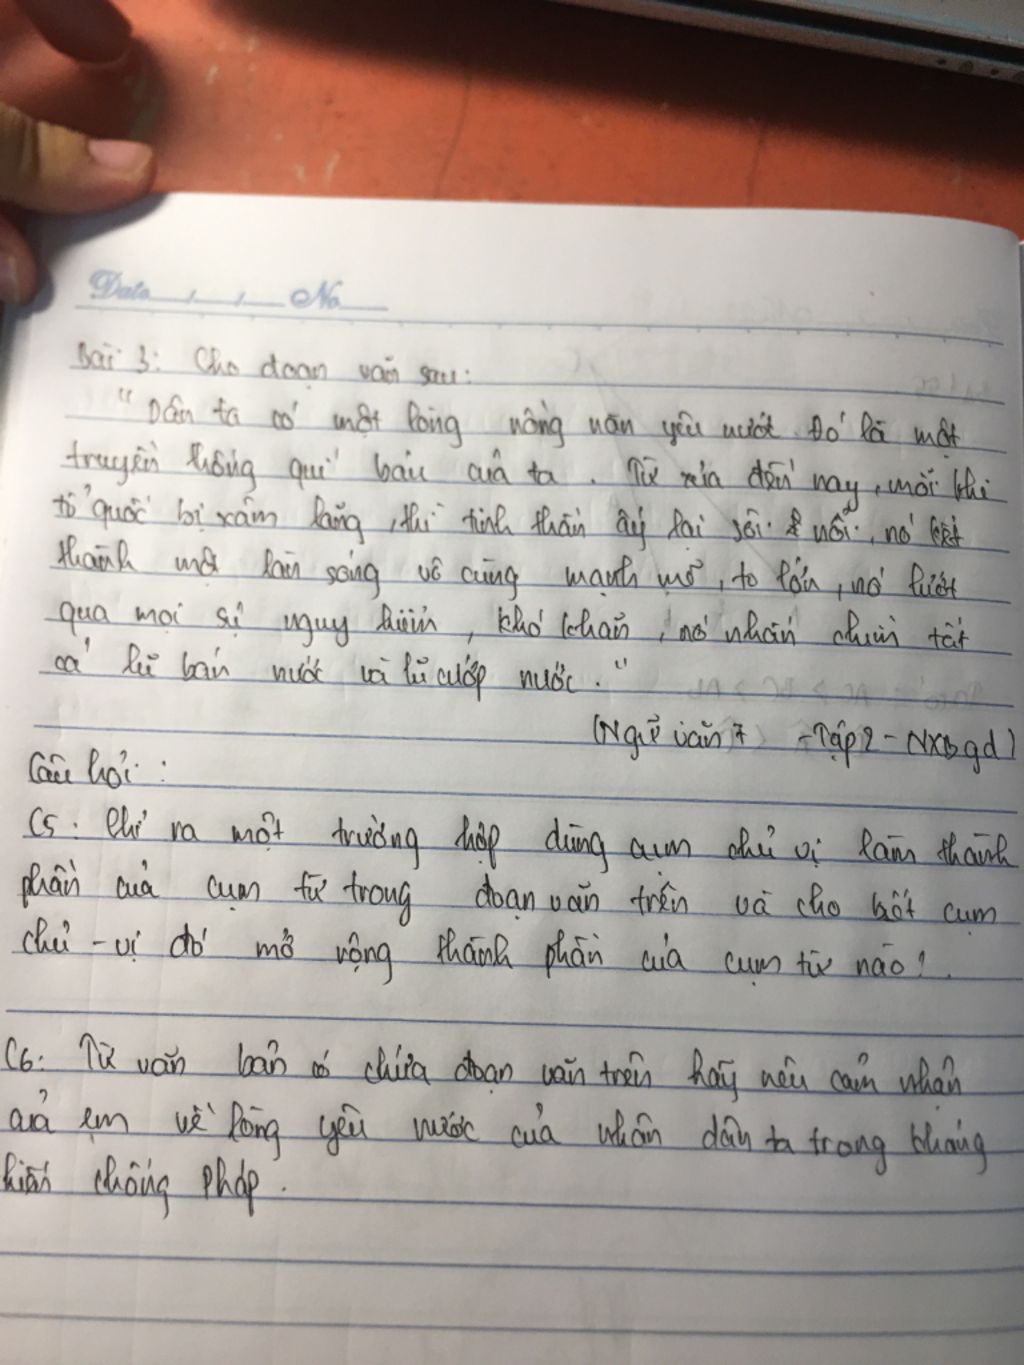 Date / / No
Bài 3: Cho đoạn văn sau:
"Dân ta có một lòng nồng nàn yêu nước. Đó là một
truyền thống quí báu của ta. Từ xưa đến nay, mỗi khi
tổ quốc bị xâm lăng, thì tinh thần ấy lại sôi nổi, nó kết
thành một làn sóng vô cùng mạnh mẽ, to lớn, nó lướt
qua mọi sự nguy hiểm, khó khăn, nó nhấn chìm tất
cả lũ bán nước và lũ cướp nước."
(Ngữ văn 7 - Tập 2 - NXBgd)
Câu hỏi:
C5: Chỉ ra một trường hợp dùng cụm chủ vị làm thành
phần của cụm từ trong đoạn văn trên và cho biết cụm
chủ - vị đó mở rộng thành phần của cụm từ nào?.
C6: Từ văn bản có chứa đoạn văn trên hãy nêu cảm nhận
của em về lòng yêu nước của nhân dân ta trong kháng
hiến chống Pháp.